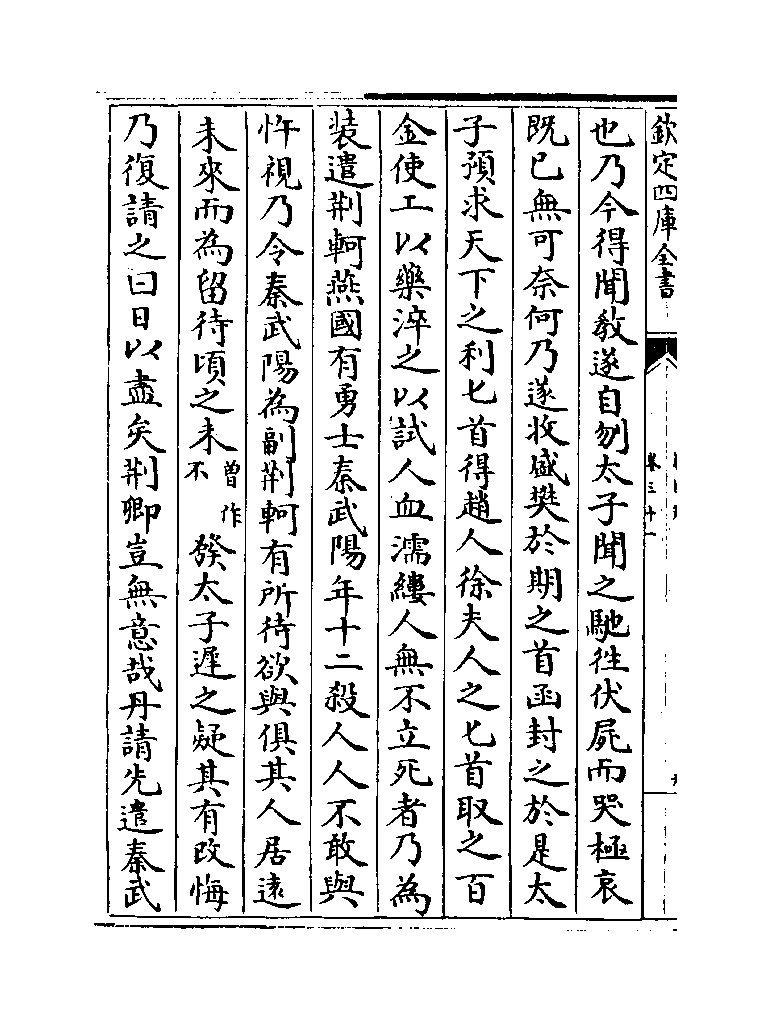 欽定四庫全書
也乃今得聞教遂自刎太子聞之馳往伏屍而哭極哀
既已無可奈何乃遂收盛樊於期之首函封之於是太
子預求天下之利匕首得趙人徐夫人之匕首取之百
金使工以藥淬之以試人血濡縷人無不立死者乃為
装遣荆軻燕國有勇士秦武陽年十二殺人人不敢與
忤視乃令秦武陽為副荆軻有所待欲與俱其人居遠
未來而為留待頃之未曾作不發太子遲之疑其有改悔
乃復請之曰日以盡矣荆卿豈無意哉丹請先遣秦武